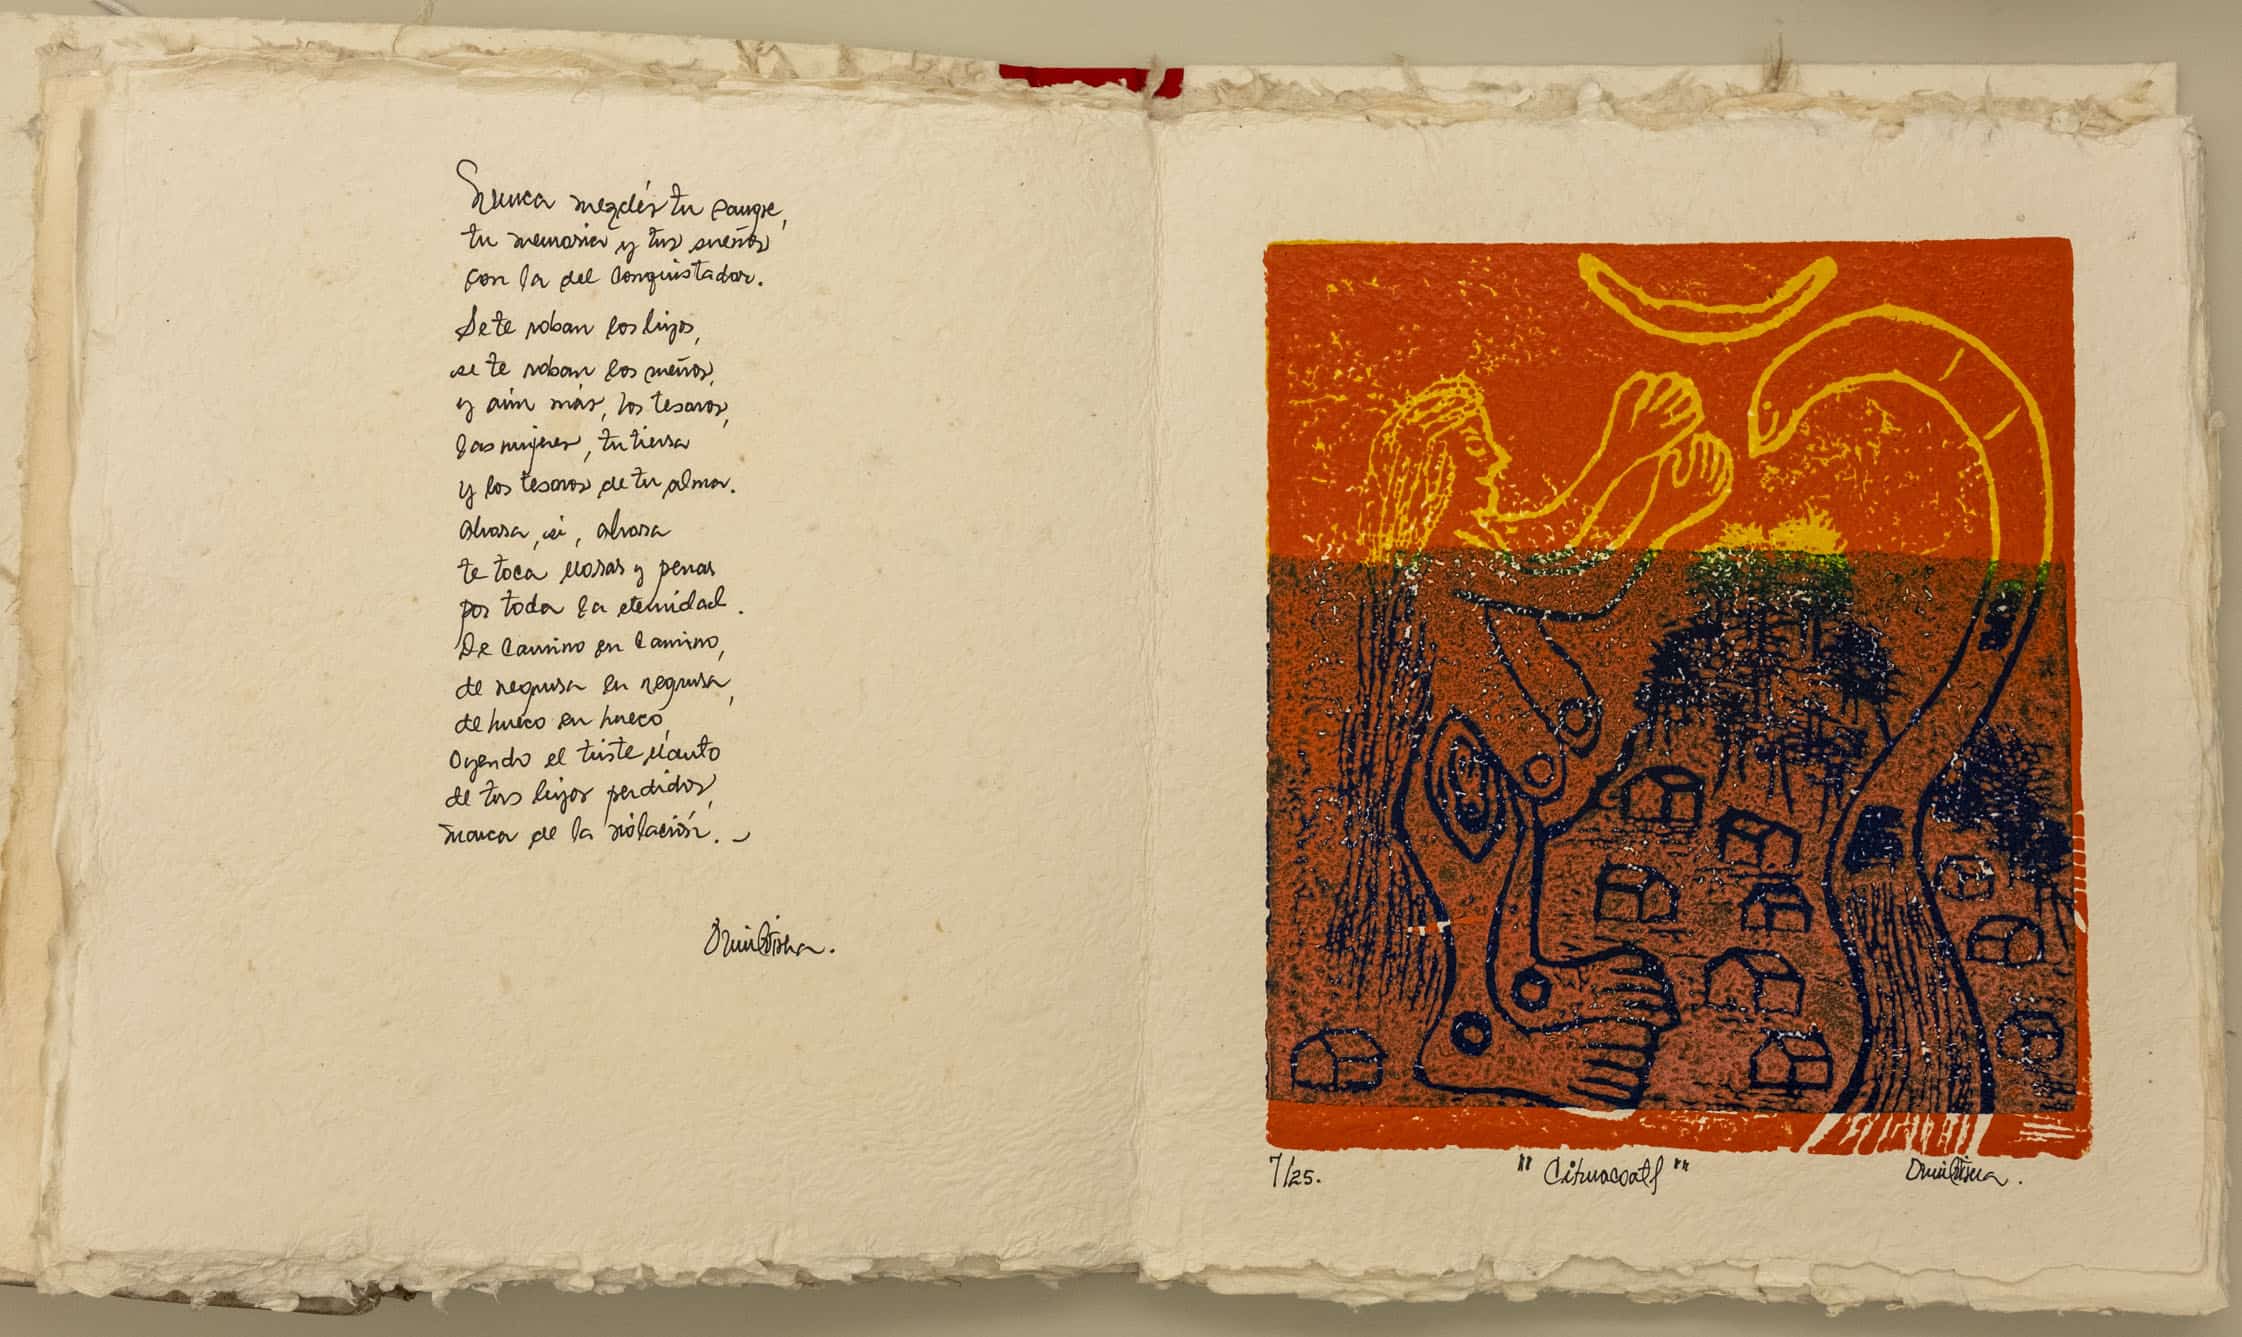 Nunca mezclés tu sangre,
tu memoria y tus sueños
con la del conquistador.
Se te roban los hijos,
se te roban los sueños,
y aún más, los tesoros,
las mujeres, tu tierra
y los tesoros de tu alma.
Ahora, sí, ahora
te toca llorar y penar
por toda la eternidad.
De camino en camino,
de negrura en negrura,
de hueco en hueco,
oyendo el triste llanto
de tus hijos perdidos,
marca de la violación.
7/25.
"Cihuacoatl"